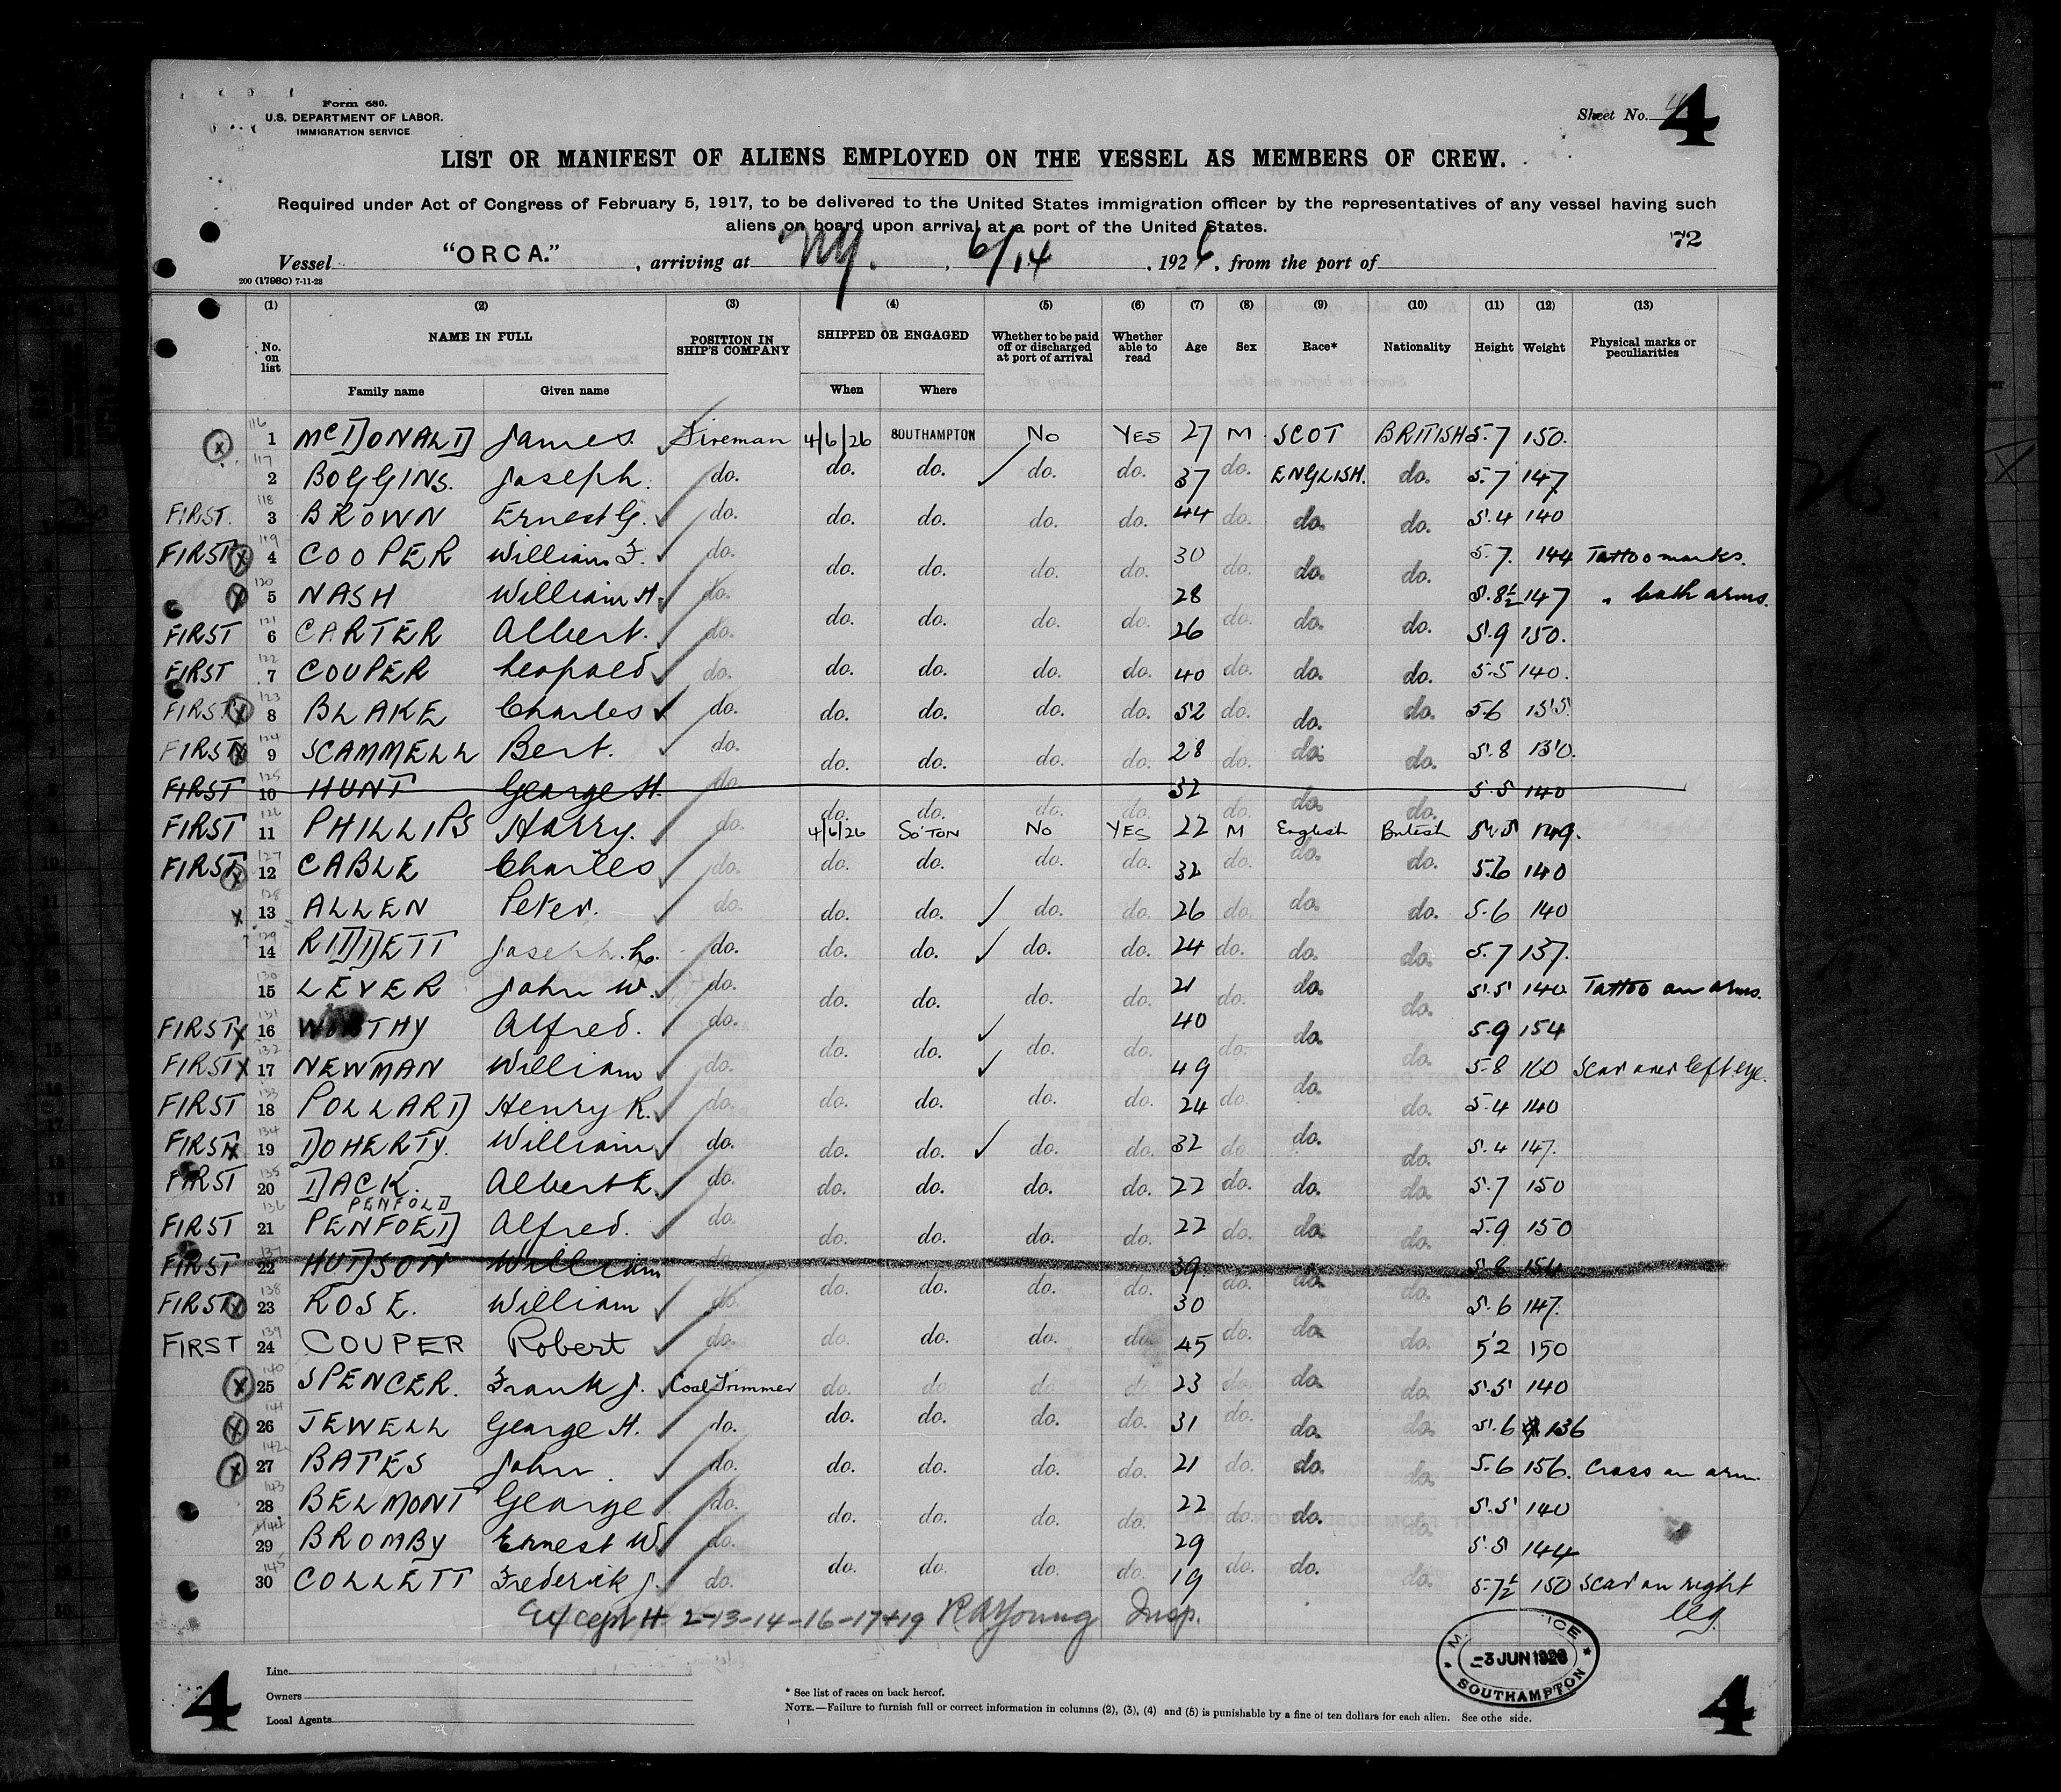 Form 680.
U.S. DEPARTMENT OF LABOR.
IMMIGRATION SERVICE
Sheet No. 4
LIST OR MANIFEST OF ALIENS EMPLOYED ON THE VESSEL AS MEMBERS OF CREW.
Required under Act of Congress of February 5, 1917, to be delivered to the United States immigration officer by the representatives of any vessel having such
aliens on board upon arrival at a port of the United States.
72
Vessel "ORCA.", arriving at NY., 6/14, 1926, from the port of
200 (1798C) 7-11-23
(1) (2) (3) (4) (5) (6) (7) (8) (9) (10) (11) (12) (13)
No. on list NAME IN FULL POSITION IN SHIP'S COMPANY SHIPPED OR ENGAGED Whether to be paid off or discharged at port of arrival Whether able to read Age Sex Race* Nationality Height Weight Physical marks or peculiarities
Family name Given name When Where
116 X 1 McDONALD James. Fireman 4/6/26 SOUTHAMPTON No YES 27 M. SCOT BRITISH 5.7 150.
117 2 BOGGINS. Joseph. do. do. do. do. do. 37 do. ENGLISH. do. 5.7 147
FIRST. 118 3 BROWN Ernest G. do. do. do. do. do. 44 do. do. do. 5.4 140
FIRST X 119 4 COOPER William F. do. do. do. do. do. 30 do. do. do. 5.7. 144 Tattoo marks.
X 120 5 NASH William H. do. do. do. do. do. 28 do. do. do. 5.8½ 147 " both arms.
FIRST 121 6 CARTER Albert. do. do. do. do. do. 26 do. do. do. 5.9 150.
FIRST 122 7 COUPER Leopold do. do. do. do. do. 40 do. do. do. 5.5 140.
FIRST X 123 8 BLAKE Charles do. do. do. do. do. 52 do. do. do. 5.6 155.
FIRST X 124 9 SCAMMELL Bert. do. do. do. do. do. 28 do. do. do. 5.8 130.
FIRST 125 10 HUNT George H. do. do. do. do. do. 32 do. do. do. 5.5 140
FIRST 126 11 PHILLIPS Harry. do. 4/6/26 So'TON No YES 22 M English British 5.5 149.
FIRST X 127 12 CABLE Charles do. do. do. do. do. 32 do. do. do. 5.6 140
X 128 13 ALLEN Peter. do. do. do. do. 26 do. do. do. 5.6 140
129 14 RIDDETT Joseph. L. do. do. do. do. do. 24 do. do. do. 5.7 137.
130 15 LEVER John W. do. do. do. do. do. 21 do. do. do. 5.5 140 Tattoo on arms.
FIRST X 131 16 WORTHY Alfred. do. 40 do. 5.9 154
FIRST X 132 17 NEWMAN William do. do. do. do. do. 49 do. do. do. 5.8 160 Scar over left eye.
FIRST 133 18 POLLARD Henry R. do. do. do. do. do. 24 do. do. do. 5.4 140
FIRST X 134 19 DOHERTY. William do. do. do. do. do. 32 do. do. do. 5.4 147.
FIRST 135 20 DACK. Albert E. do. do. do. do. do. 22 do. do. do. 5.7 150
PENFOLD
FIRST 136 21 PENFOED Alfred. do. do. do. do. do. 22 do. do. do. 5.9 150
FIRST 137 22 HUDSON William do. 39. do. do. 5.8 154
FIRST X 138 23 ROSE. William do. do. do. do. do. 30 do. do. do. 5.6 147.
FIRST 139 24 COUPER Robert do. do. do. do. do. 45 do. do. do. 5'2 150
X 140 25 SPENCER. Frank J. Coal Trimmer do. do do. do 23 do. do. do. 5.5 140
X 141 26 JEWELL George H. do. do. do. do. do. 31 do. do. do. 5.6 136
X 142 27 BATES John. do. do. do. do. do. 21 do. do. do. 5.6 156. Cross on arm.
143 28 BELMONT George do. do. do. do. do. 22 do. do. do. 5.5 140
144 29 BROMBY Ernest W. do. 29 5.5 144
145 30 COLLETT Frederick J. do. do. do. do. do. 19 do. do. do. 5.7½ 150 Scar on right
leg
Except # 2-13-14-16-17+19 RA Young Insp.
M. ICE
-3 JUN 1926
SOUTHAMPTON
4 4
Line
Owners
Local Agents
* See list of races on back hereof.
NOTE.—Failure to furnish full or correct information in columns (2), (3), (4) and (5) is punishable by a fine of ten dollars for each alien. See othe side.